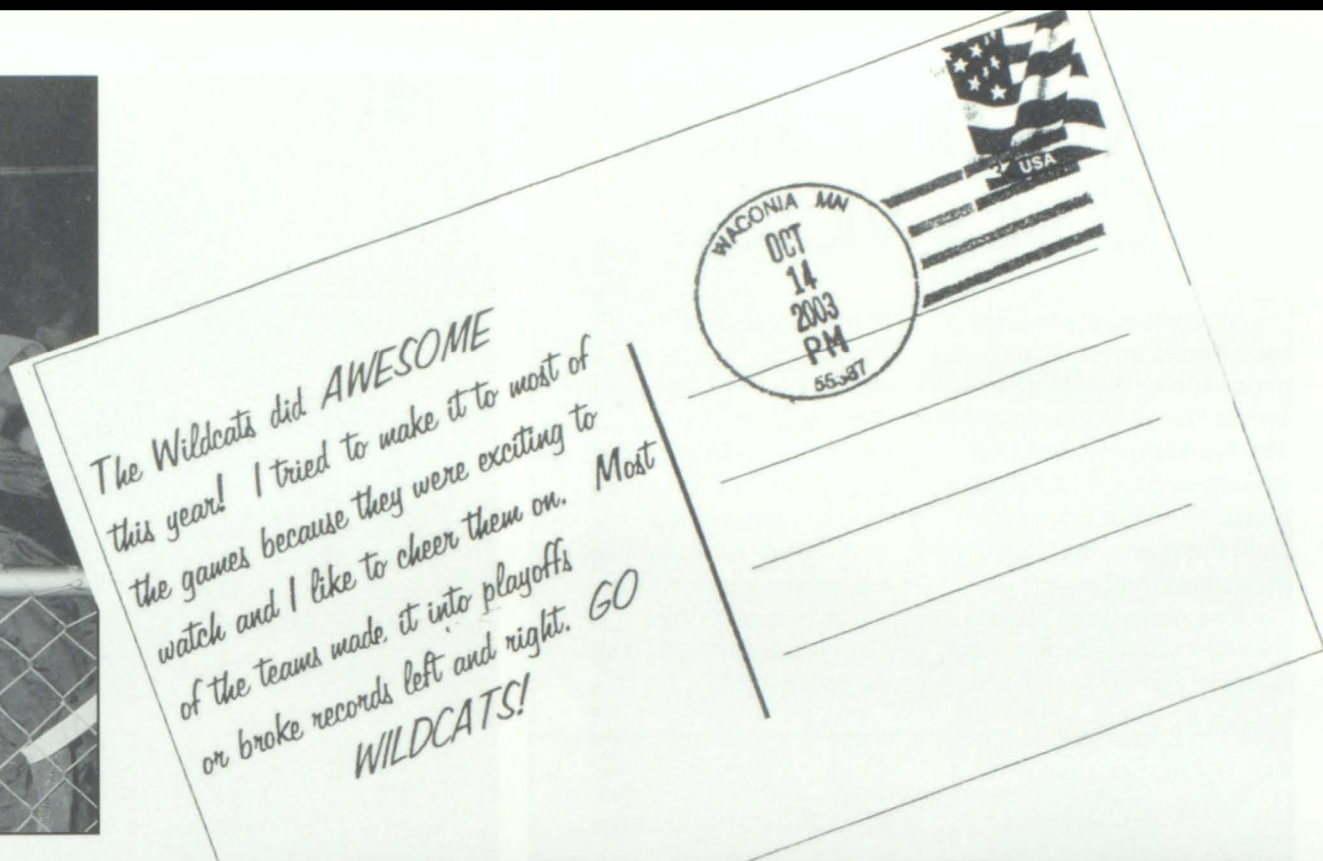 The Wildcats did AWESOME
this year! I tried to make it to most of
the games because they were exciting to
watch and I like to cheer them on. Most
of the teams made it into playoffs
or broke records left and right. GO
WILDCATS!
USA
WACONIA MN
OCT
14
2003
PM